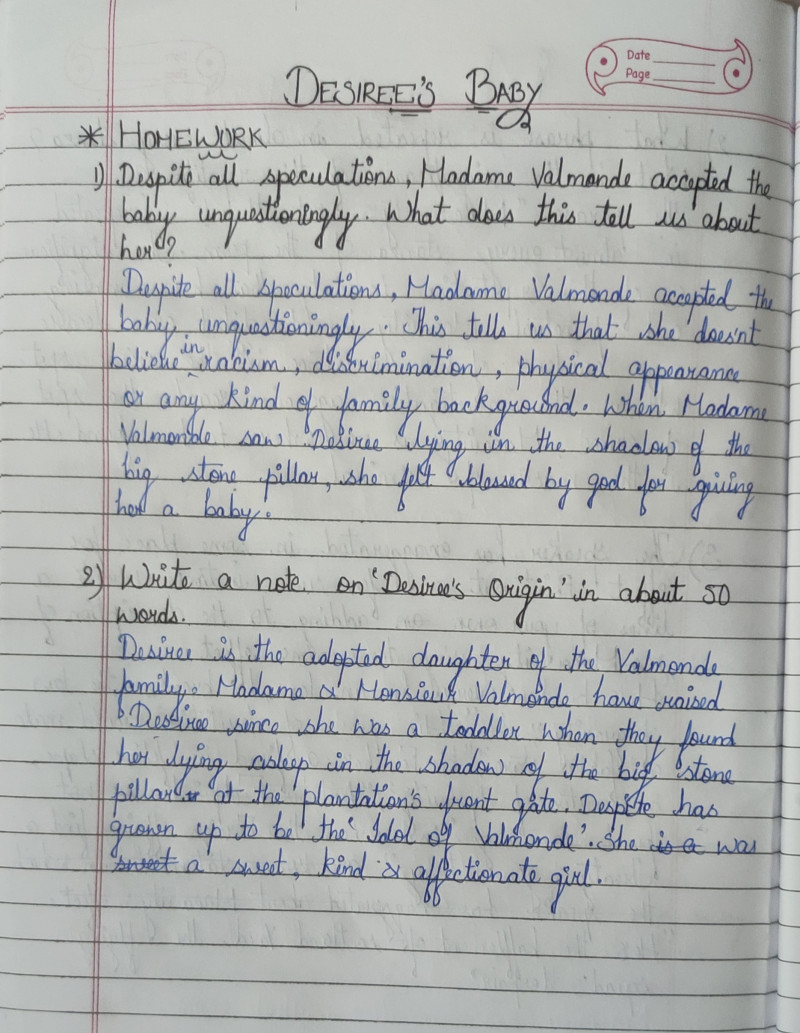 Date
Page
DESIREE'S BABY
* HOMEWORK
1) Despite all speculations, Madame Valmonde accepted the
baby unquestioningly. What does this tell us about
her?
Despite all speculations, Madame Valmonde accepted the
baby unquestioningly. This tells us that she doesn't
believe in racism, discrimination, physical appearance
or any kind of family background. When Madame
Valmonde saw Desiree lying in the shadow of the
big stone pillar, she felt blessed by god for giving
her a baby.
2) Write a note on 'Desiree's Origin' in about 50
words.
Desiree is the adopted daughter of the Valmonde
family. Madame & Monsieur Valmonde have raised
Desiree since she was a toddler when they found
her lying asleep in the shadow of the big stone
pillar at the plantation's front gate. Despite has
grown up to be the 'Idol of Valmonde'. She is a was
sweet a sweet, kind & affectionate girl.